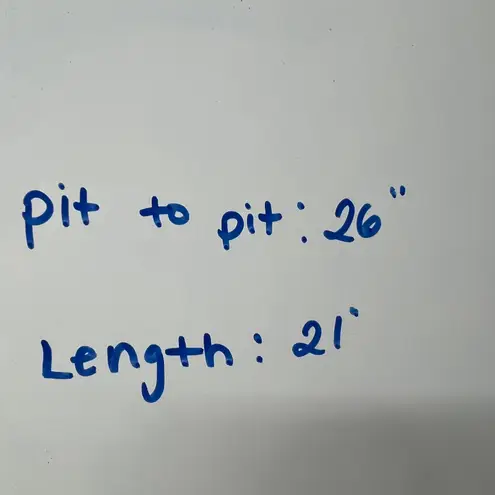 pit to pit: 26"
Length: 21'